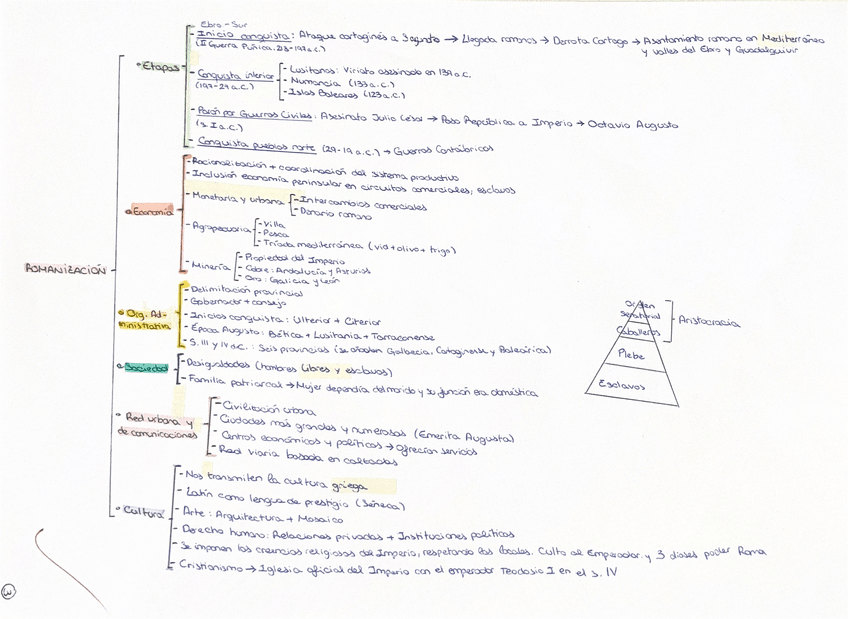 Ebro - Sur
- Inicio conquista: Ataque cartaginés a Sagunto → Llegada romanos → Derrota Cartago → Asentamiento romano en Mediterráneo
(II Guerra Púnica, 218-197 a.C.) y valles del Ebro y Guadalquivir
• Etapas
- Conquista interior
(197-29 a.C.)
- Lusitanos: Viriato asesinado en 139 a.C.
- Numancia (133 a.C.)
- Islas Baleares (123 a.C.)
- Parón por Guerras Civiles: Asesinato Julio César → Paso República a Imperio → Octavio Augusto
(s. I a.C.)
- Conquista pueblos norte (29-19 a.C.) → Guerras Cántabricas
ROMANIZACIÓN
• Economía
- Racionalización + coordinación del sistema productivo
- Inclusión economía peninsular en circuitos comerciales; esclavos
- Monetaria y urbana
- Intercambios comerciales
- Denario romano
- Agropecuaria
- Villa
- Pesca
- Tríada mediterránea (vid + olivo + trigo)
- Minería
- Propiedad del Imperio
- Cobre: Andalucía y Asturias
- Oro: Galicia y León
• Org. Ad-
ministrativa
- Delimitación provincial
- Gobernador + consejo
- Inicios conquista: Ulterior + Citerior
- Época Augusto: Bética + Lusitania + Tarraconense
- S. III y IV d.C.: Seis provincias (se añaden Gallaecia, Cartaginense y Baleárica)
• Sociedad
- Desigualdades (hombres libres y esclavos)
- Familia patriarcal → Mujer dependía del marido y su función era doméstica
Orden
Senatorial
Caballeros
Aristocracia
Plebe
Esclavos
• Red urbana y
de comunicaciones
- Civilización urbana
- Ciudades más grandes y numerosas (Emerita Augusta)
- Centros económicos y políticos → Ofrecían servicios
- Red viaria basada en calzadas
• Cultura
- Nos transmiten la cultura griega
- Latín como lengua de prestigio (Séneca)
- Arte: Arquitectura + Mosaico
- Derecho humano: Relaciones privadas + Instituciones políticas
- Se imponen las creencias religiosas del Imperio, respetando las locales. Culto al Emperador y 3 dioses Roma
- Cristianismo → Iglesia oficial del Imperio con el emperador Teodosio I en el s. IV
3